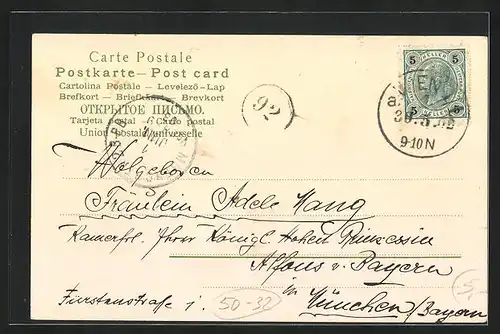 Carte Postale
Postkarte – Post card
Cartolina Postale – Levelező-Lap
Brefkort – Briefkaart – Brevkort
ОТКРЫТОЕ ПИСЬМО.
Tarjeta postal – Carte postal
Union postale universelle
92
5 5
5 5
9-10N
Wolgeboren
Fräulein Adele Mang
Kamerfrl. Ihrer Königl. Hoheit Prinzessin
Alfons v. Bayern
in München / Bayern
Fürstenstraße 1.
50-32
5,-